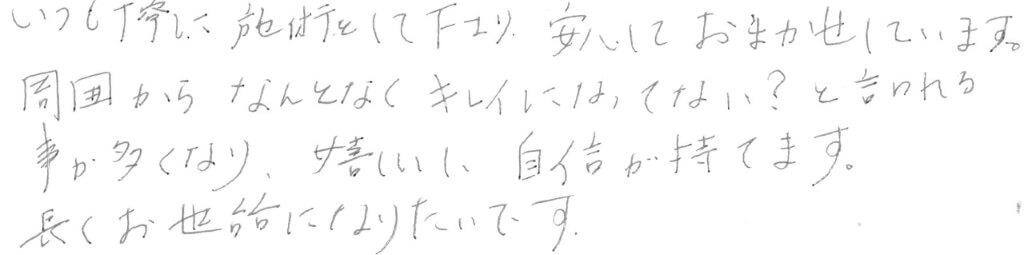 いつも丁寧に施術をして下さり、安心しておまかせしています。
周囲からなんとなくキレイになってない？と言われる
事が多くなり、嬉しいし、自信が持てます。
長くお世話になりたいです。